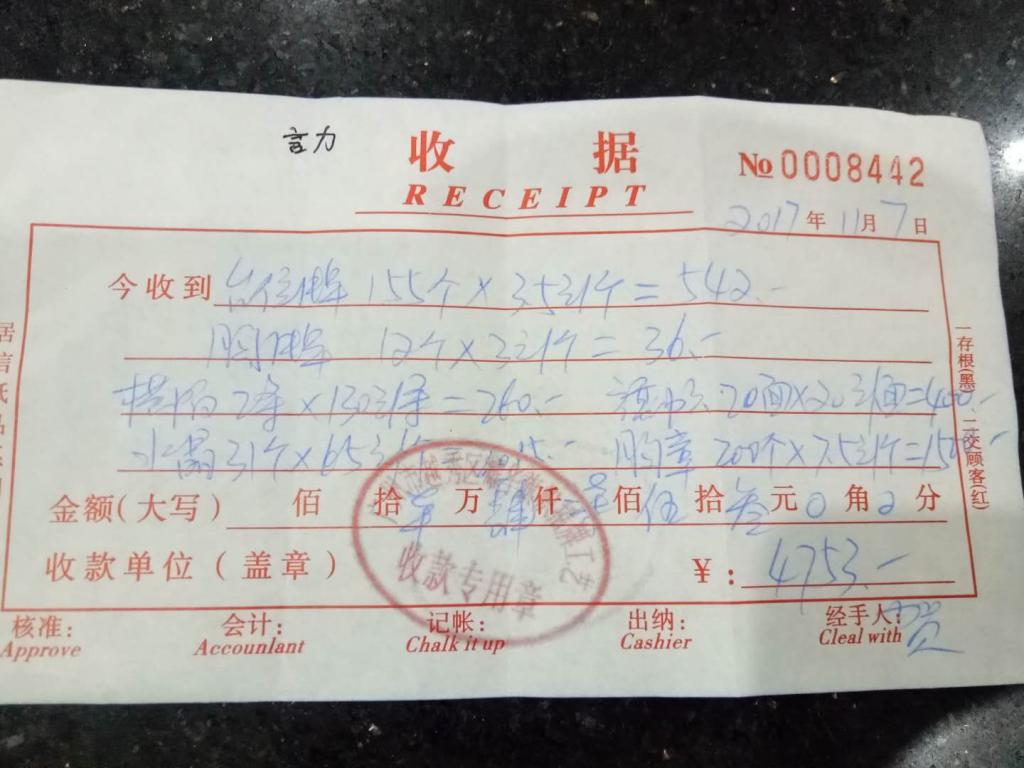 言力
收 据
RECEIPT
№0008442
2017年11月7日
今收到 台位牌 155个×3.5元/个=542.-
胸牌 12个×3元/个=36.-
横幅2条×130元/条=260.- 20面×20元/面=400.-
31个×65元/个 15.- 胸章 200个×7.5元/个=150
金额(大写) 佰 拾 万 肆仟 佰伍拾叁元0角0分
收款单位(盖章) ¥: 4753.-
收款专用章
核准: 会计: 记帐: 出纳: 经手人:
Approve Accountlant Chalk it up Cashier Cleal with
一存根(黑)二交顾客(红)